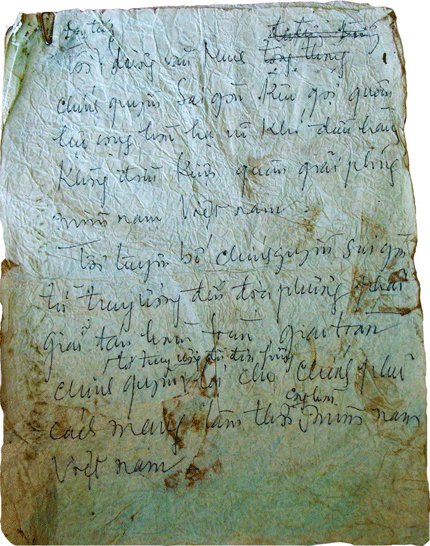 Tôi Dương Văn Minh tổng thống
chính quyền Sài gòn kêu gọi quân
lực cộng hòa hạ vũ khí đầu hàng
không điều kiện quân giải phóng
miền nam Việt nam.
Tôi tuyên bố chính quyền Sài gòn
từ trung ương đến địa phương phải
giải tán hoàn toàn giao toàn
từ trung ương đến địa phương
chính quyền lại cho chính phủ
cộng hòa
cách mạng lâm thời miền nam
Việt nam